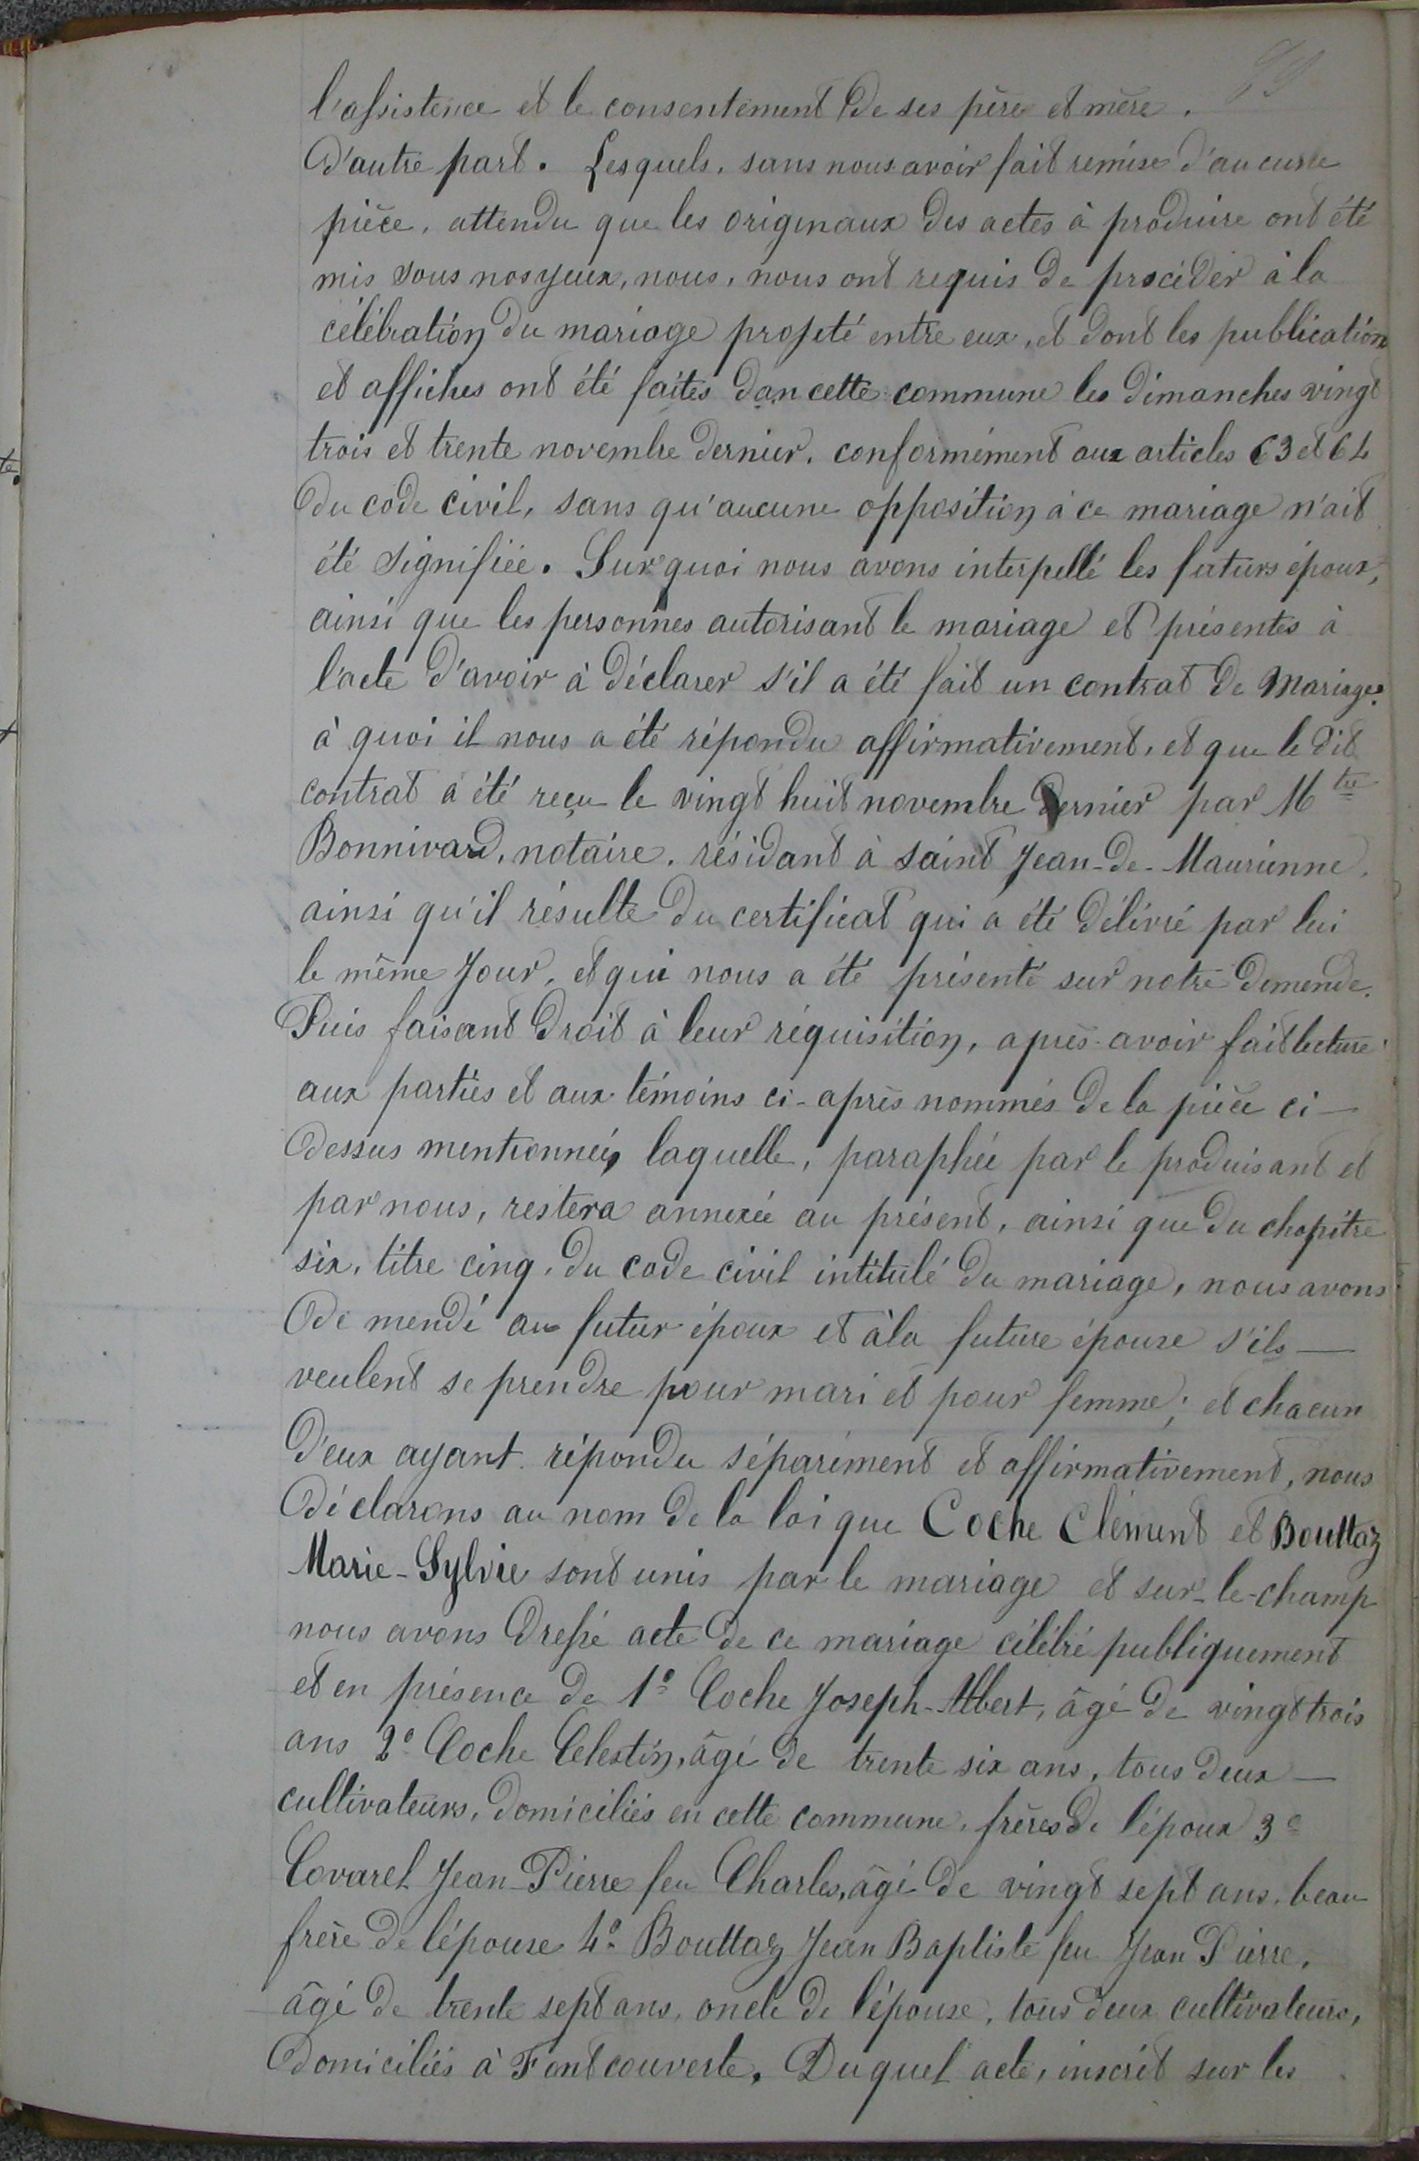 l'assistence et le consentement de ses père et mère.
d'autre part. Lesquels, sans nous avoir fait remise d'aucune
pièce, attendu que les originaux des actes à produire ont été
mis sous nos yeux, nous, nous ont requis de procéder à la
célébration du mariage projeté entre eux, et dont les publication
et affiches ont été faites dan cette commune les dimanches vingt
trois et trente novembre dernier, conformément aux articles 63 et 64
du code civil, sans qu'aucune opposition à ce mariage n'ait
été signifiée. Sur quoi nous avons interpellé les futurs époux,
ainsi que les personnes autorisant le mariage et présentes à
l'acte d'avoir à déclarer s'il a été fait un contrat de Mariage.
à quoi il nous a été répondu affirmativement, et que le dit
contrat a été reçu le vingt huit novembre dernier par Mtre
Bonnivard, notaire, résidant à saint Jean-de-Maurienne,
ainsi qu'il résulte du certificat qui a été délivré par lui
le même Jour, et qui nous a été présenté sur notre demende.
Puis faisant droit à leur réquisition, après avoir fait lecture
aux parties et aux témoins ci-après nommés de la pièce ci-
dessus mentionnée, laquelle, paraphée par le produisant et
par nous, restera annexée au présent, ainsi que du chapitre
six, titre cinq, du code civil intitulé du mariage, nous avons
de mendé au futur époux et à la future épouse s'ils
veulent se prendre pour mari et pour femme; et chacun
d'eux ayant répondu séparément et affirmativement, nous
déclarons au nom de la loi que Coche Clément et Bouttaz
Marie-Sylvie sont unis par le mariage et sur-le-champ
nous avons dressé acte de ce mariage célébré publiquement
et en présence de 1º Coche Joseph-Albert, âgé de vingt trois
ans 2º Coche Celestin, âgé de trente six ans, tous deux
cultivateurs, domiciliés en cette commune, frères de l'époux 3º
Covarel Jean-Pierre feu Charles, âgé de vingt sept ans, beau
frère de l'épouse 4º Bouttaz Jean Baptiste feu Jean Pierre,
âgé de trente sept ans, oncle de l'épouse, tous deux cultivateurs,
domiciliés à Fontcouverte. Duquel acte, inscrit sur les